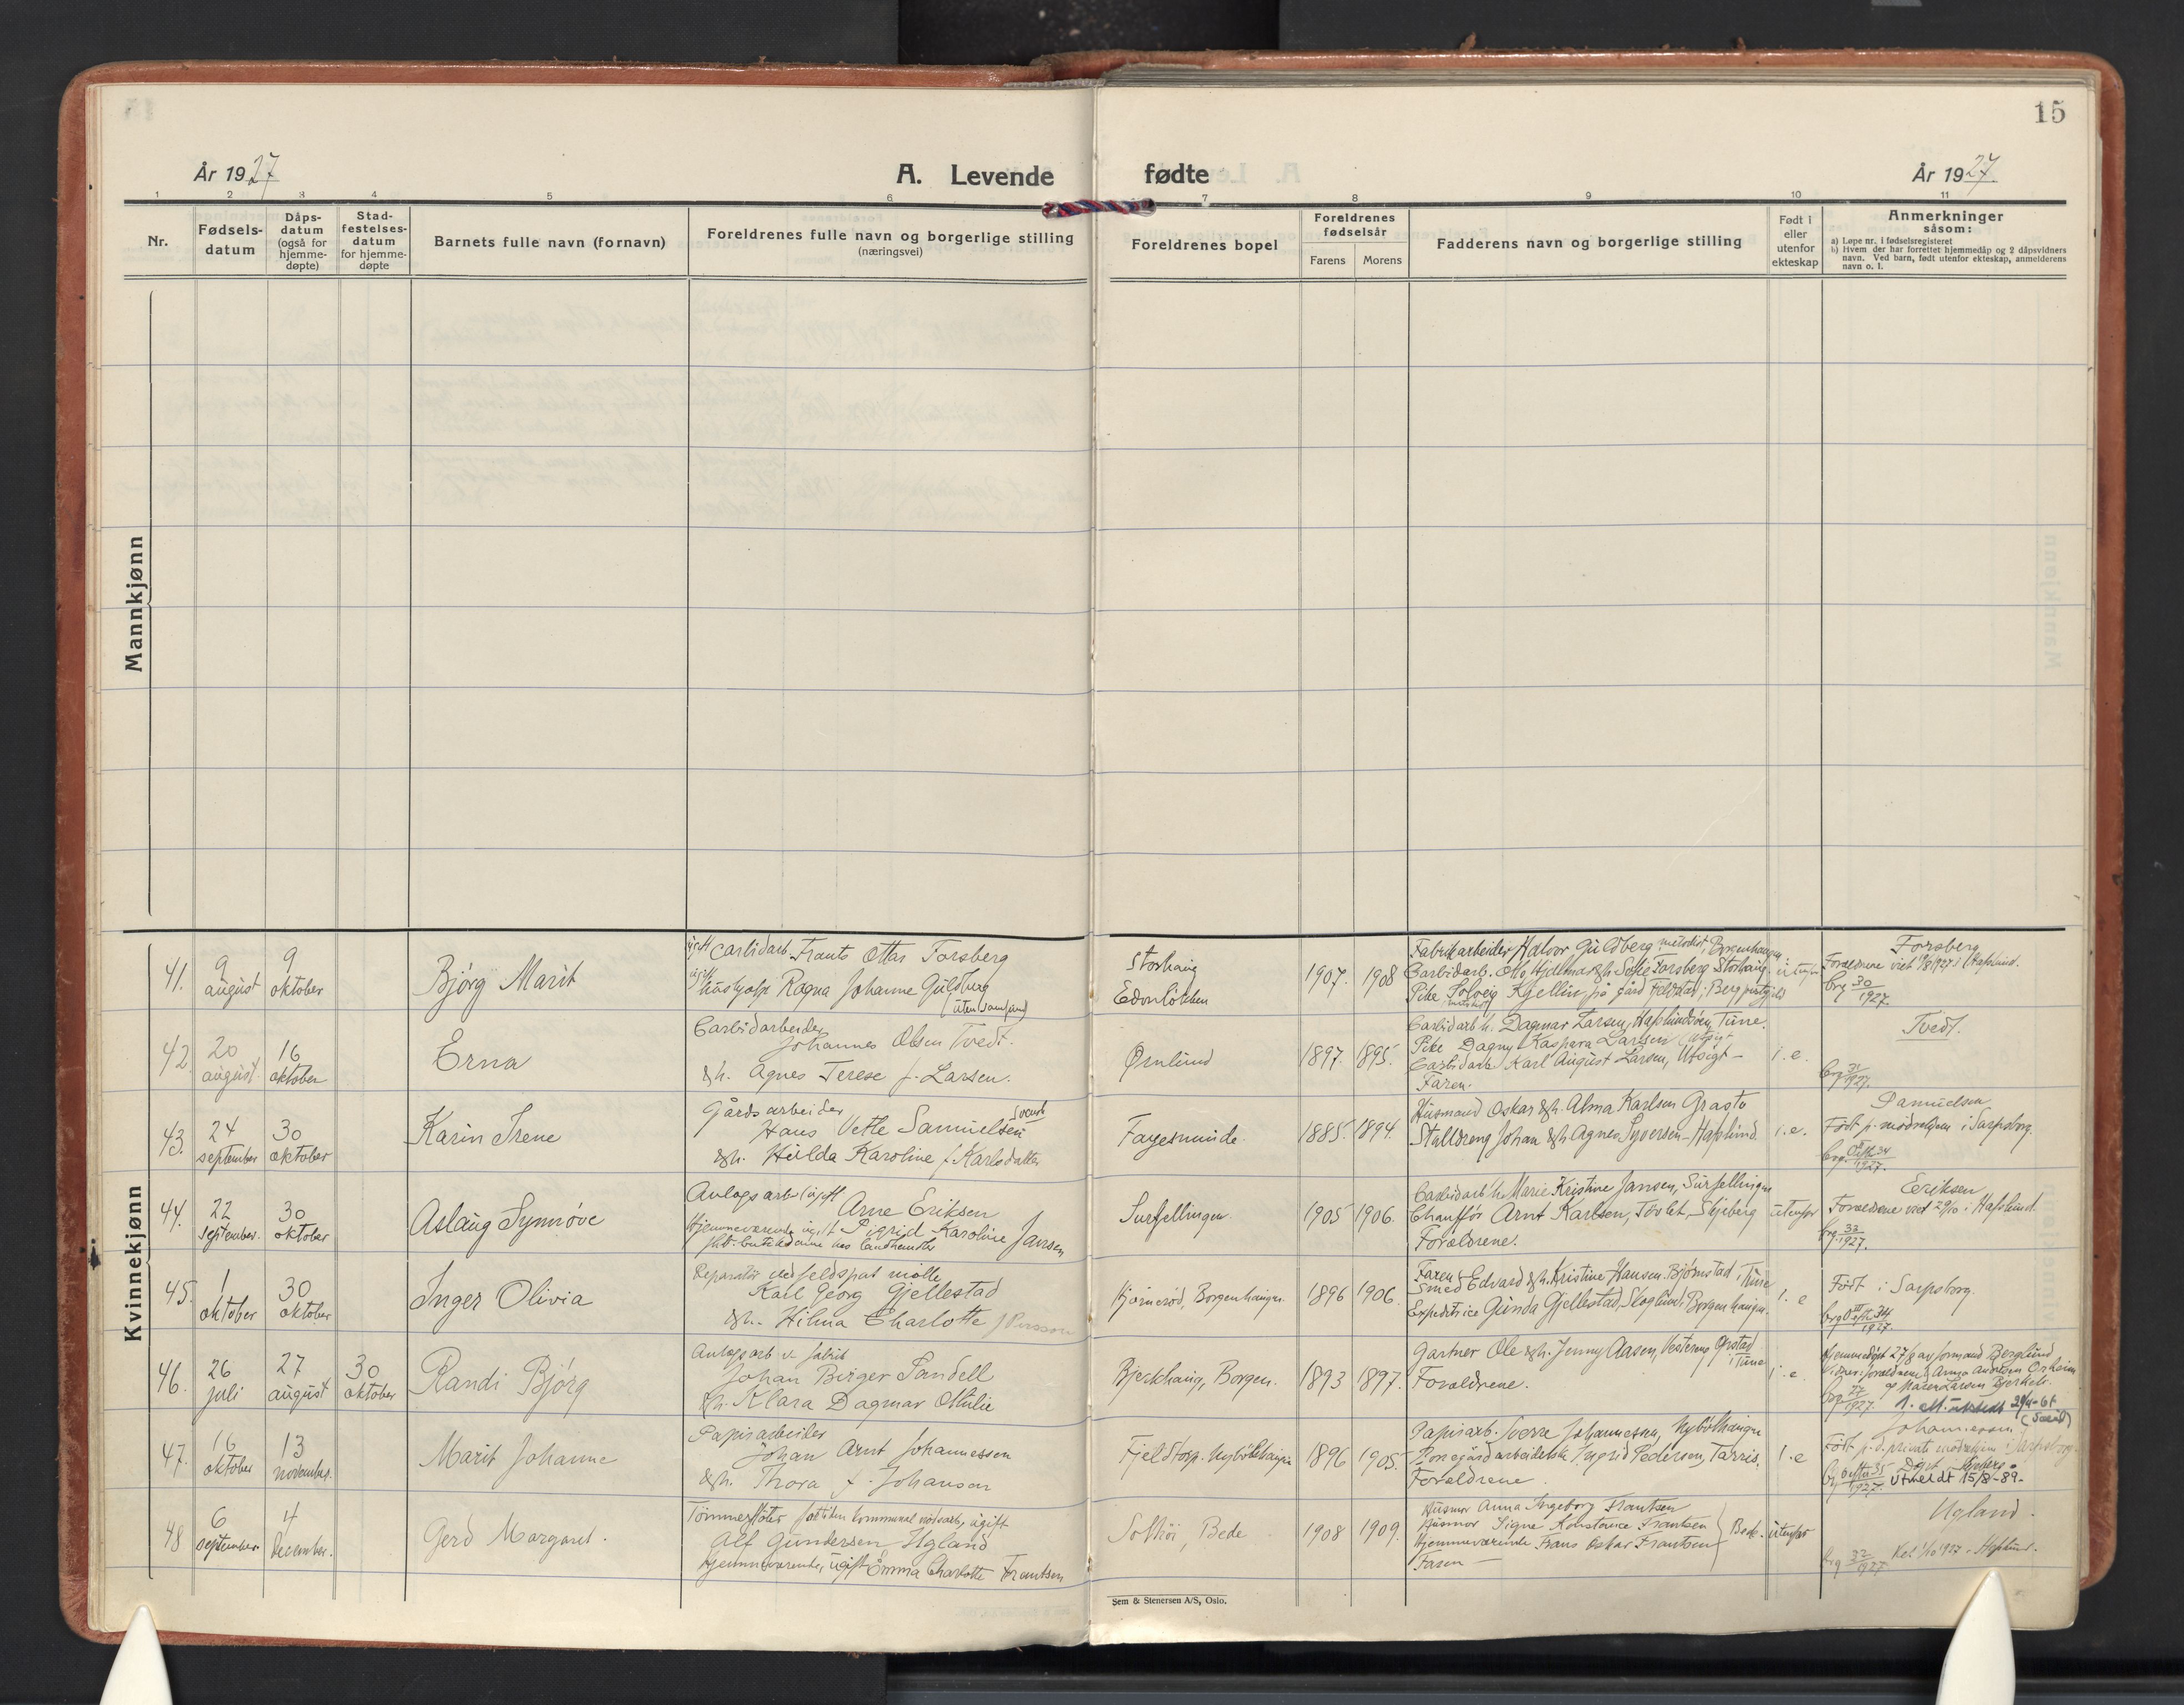 15
År 1927
A. Levende
fødte
År 1927.
1 2 3 4 5 6 7 8 9 10 11
Nr.
Fødsels-
datum
Dåps-
datum
(også for
hjemme-
døpte)
Stad-
festelses-
datum
for hjemme-
døpte
Barnets fulle navn (fornavn)
Foreldrenes fulle navn og borgerlige stilling
(næringsvei)
Foreldrenes bopel
Foreldrenes
fødselsår
Farens
Morens
Fadderens navn og borgerlige stilling
Født i
eller
utenfor
ekteskap
Anmerkninger
såsom:
a) Løpe nr. i fødselsregisteret
b) Hvem der har forrettet hjemmedåp og 2 dåpsvidners
navn. Ved barn, født utenfor ekteskap, anmelderens
navn o. l.
Mannkjønn
Kvinnekjønn
41.
9
august
9
oktober
Bjørg Marit
ugift Carbidarb. Frants Ottar Forsberg
ugift hushjelp Ragna Johanne Guldberg
Storhaug
1907. 1908
Fabrikarbeider Halvor Guldberg, metodist, Borgenhaugen
Carbidarb. Otto Hjalmar & h. Sofie Forsberg Storhaug.
Pike Solveig Kjellin på gård
utenfor
Forsberg
Foreldrene viet i Hafslund.
Brg 30/1927.
42.
20
august.
16
oktober
Erna
Carbidarbeider
Johannes Olsen Tvedt.
& h. Agnes Terese f. Larsen.
Ørnlund
1897. 1895.
Carbidarb. h. Dagmar Larsen, Hafslundsøen, Tune.
Pike Dagny Kaspara Larsen
Carbidarb. Karl August Larsen, Utsigt -
Faren.
i. e.
Tvedt.
Brg 31/1927.
43.
24
september
30
oktober
Karin Irene
Gårdsarbeider
Hans Vetle Samuelsen
& h. Hulda Karoline f. Karlsdatter
Fagesminde.
1885. 1894.
Husmand Oskar & h. Alma Karlsen
Stalldreng Johan & h. Agnes Syversen - Hafslund.
i. e.
Samuelsen
Født p. mødrehjem i Sarpsborg.
1927.
44.
22
september.
30
oktober
Aslaug Synnøve
Anlegsarb. ugift Arne Eriksen
Hjemmeværende ugift Sigrid Karoline Jansen
Surfellingen
1905 1906.
Carbidarb. h. Marie Kristine Jansen, Surfellingen
Chauffør Arnt Karlsen, Skjeberg
Foreldrene.
utenfor
Eriksen
Foreldrene viet 29/10 i Hafslund.
Brg. 32/1927.
45.
1
oktober
30
oktober
Inger Olivia
Reparatør ved feldspat mølle
Karl Georg Gjellestad
& h. Hilma Charlotte f Persson
Bjørnerød, Borgenhaugen.
1896 1906.
Faren
Smed Edvard & h. Kristine Hansen. Bjørnstad i Tune
Expeditrice Gunda Gjellestad, Skoglund, Borgenhaugen.
i. e
Født i Sarpsborg.
1927.
46.
26
juli
27
august
30
oktober
Randi Bjørg
Anlegsarb v. fabrik
Johan Birger Sandell
& h. Klara Dagmar Ottilie
Bjerkhaug, Borgen.
1893 1897.
Gartner Ole & h. Jenny Aasen, i Tune
Foreldrene.
i. e.
Hjemmedøpt 27/8 av formand Berglund
Brg 27/1927.
47.
16
oktober
13
november.
Marit Johanne
Papirarbeider
Johan Arnt Johannessen
& h. Thora f. Johansen
1896 1905.
Papirarb. Sverre Johannessen,
Ingrid Pedersen, Tarris.
Foreldrene.
i. e
Johannessen
Født p. d. private mødrehjem i Sarpsborg.
1927.
Utmeldt 15/8-89.
48
6
september
4
december.
Gerd Margaret.
Tømmerfløter, ugift
Alf Gundersen Ugland
Hjemmeværende, ugift Emma Charlotte Frantsen
1908 1909.
Husmor Anna Ingeborg Frantsen
Husmor Signe Konstance Frantsen
Hjemmeværende Frans Oskar Frantsen
Faren -
utenfor
Ugland.
Brg 32/1927.
Sem & Stenersen A/S, Oslo.